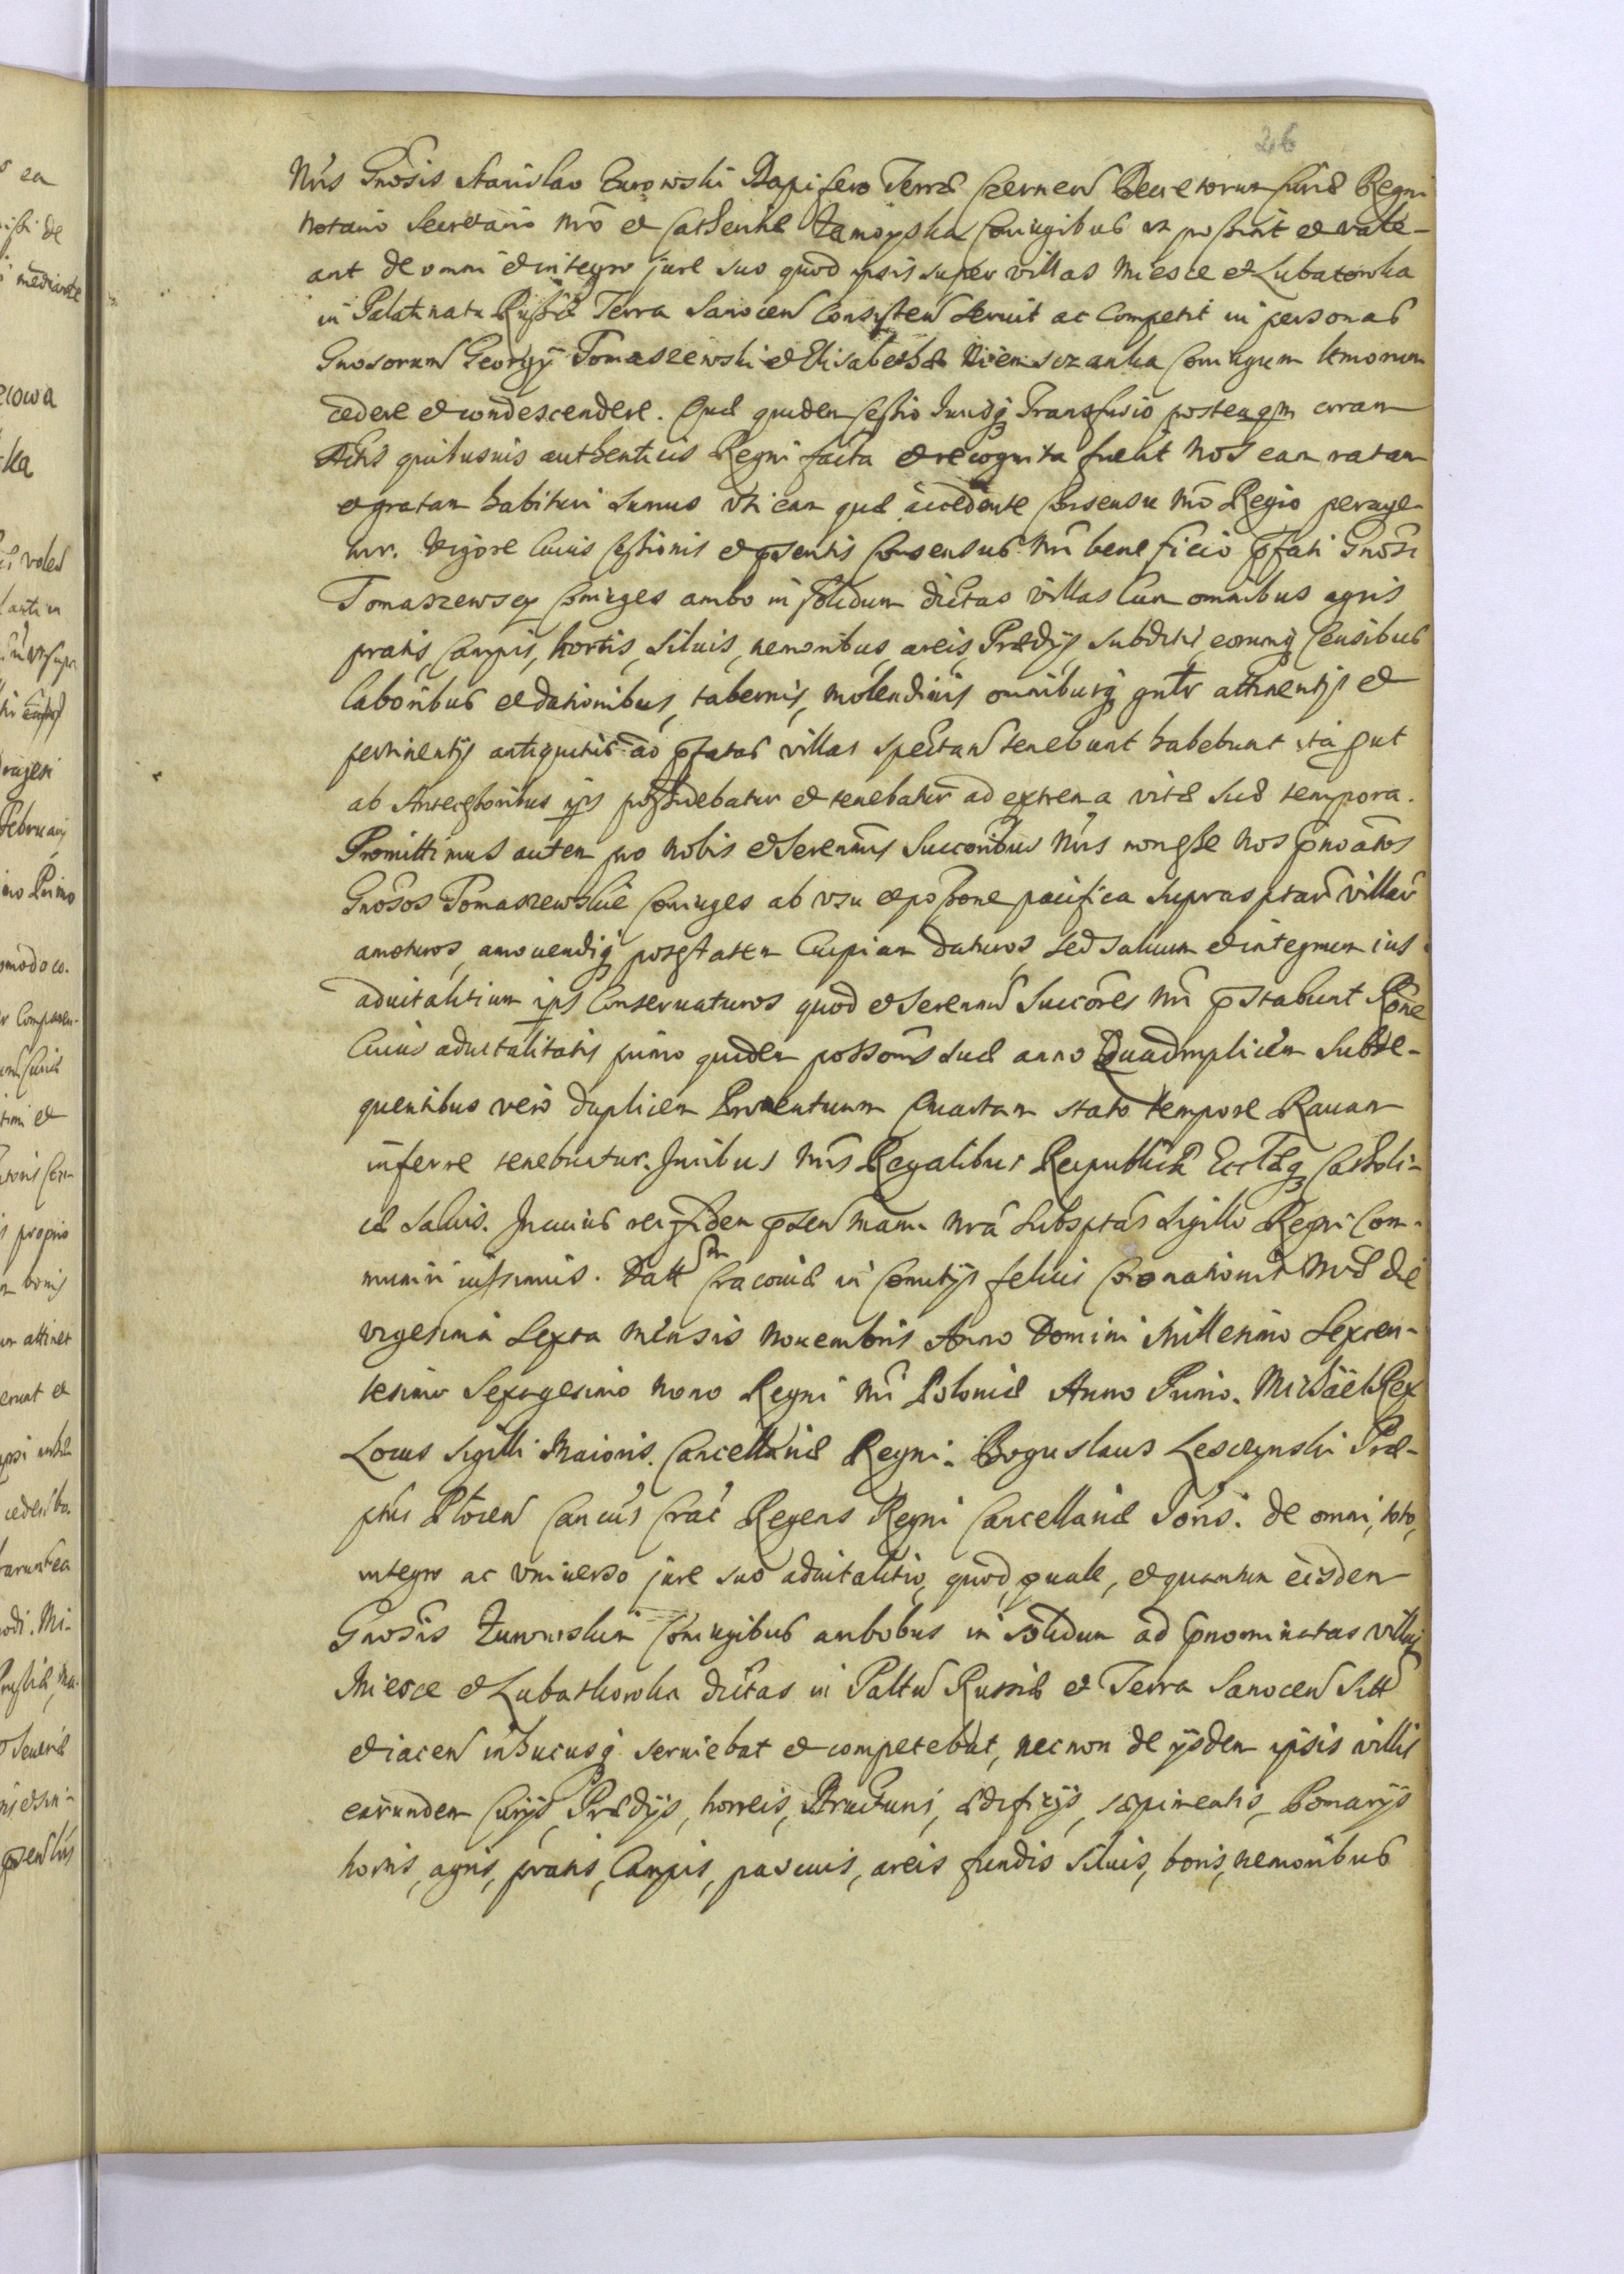 26
Nris Gnosis Stanislao Zurowski Dapifero Terræ Czernen Decretorum Curiæ Regni
Notario Secretario nro et Catherinæ Zamoyska Coniugibus ut possint et vale-
ant de omni et integro jure suo quod ipsis super villas Miesce et Lubatowka
in Palatinatu Russiæ Terra Sanocen Consisten servit ac Competit in personas
Gnosorum Georgij Tomaszewski et Elisabethæ Coniugum
cedere et condescendere. Quæ quidem Cessio Jurisq Transfusio posteaqm coram
Actis quibusuis authenticis Regni facta et recognita fuerit Nos eam ratam
et gratam habituri sumus uti eam quæ accedente Consensu nro Regio perage-
tur. Vigore Cuius Cessionis et pntis Consensus nri beneficio pfati Gnosi
Tomaszewscy Coniuges ambo in solidum dictas villas Cum omnibus agris
pratis, Campis, hortis, siluis, nemoribus, areis, Prædijs, subditis eorumq Censibus
laboribus et dationibus, tabernis, molendinis omnibusq gnlr attinentijs et
pertinentijs antiquitus ad pfatas villas spectan tenebunt habebunt ita put
ab Antecessoribus ipsis possidebatur et tenebatur ad extrema vitæ suæ tempora.
Promittimus autem pro nobis et Serenmis Succoribus nris non esse nos pnoatos
Gnosos Tomaszewskie Coniuges ab usu et possone pacifica suprasptar villar
amoturos, amouendiq potestatem Cuipiam daturos, sed saluum et integrum ius
aduitalitium ipsis Conseruaturos quod et Serenmi Succores nri pstabunt Rone
Cuius aduitalitatis primo quidem possonis suæ anno Quadruplicem subse-
quentibus vero duplicem Prouentuum Quartam stato tempore Rauam
inferre tenebuntur. Juribus nris Regalibus Reipublicæ Ecclæq Catholi-
cæ saluis. In cuius rei fidem psen manu nra subsptas Sigillo Regni Com-
muniri iussimus. Datt Cracouiæ in Comitijs felicis Coronationis Nræ die
vigesima Sexta mensis Nouembris Anno Domini Millesimo Sexcen-
tesimo Sexagesimo Nono Regni Nri Poloniæ Anno Primo. Michäel Rex
Locus Sigilli Maioris Cancellariæ Regni. Boguslaus Lesczynski Præ-
ptus Plocen Cancus Crac Regens Regni Cancellariæ De omni, toto,
integro ac vniuerso jure suo aduitalitio, quod, quale, et quantum eisdem
Gnosis Zurowskim Coniugibus ambobus in solidum ad pnominatas villas
Miesce et Lubathowka dictas in Palttu Russiæ et Terra Sanocen Sitt
et iacen inhucusq seruiebat et competebat, nec non de ijsdem ipsis villis
earundem Curijs, Prædijs, horreis, Structuris, ædificijs, sæpimentis, Pomarijs
hortis, agris, pratis, Campis, pascuis, areis fundis siluis, boris, nemoribus